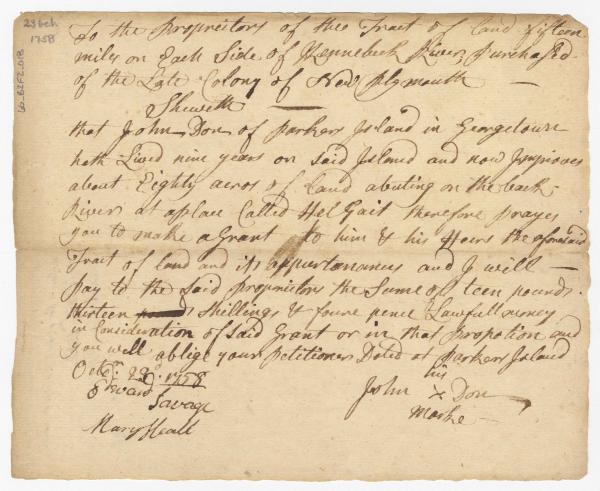 23 Oct
1758
To the Proprietors of the Tract of Land fifteen
miles on Each Side of Kennebeck River, Purchased
of the Late Colony of New Plymouth
Sheweth
that John Don of Parkers Island in Georgetown
hath Lived nine years on said Island and now Improves
about Eighty acros of Land abuting on the back
River at a place Called Hel Gait therefore prayes
you to make a Grant to him & his Heors the aforesaid
Tract of Land and its appurtonances and I will
pay to the said proprietors the Sume of teen pounds
thirteen shillings & foure pence Lawfull money
in Consideration of said Grant or in that Propotion and
you will oblige your Petitioner Dated at Parkers Island
Octor. 23d. 1758
his
John X Don
marke
Edward
Savage
Mary Heall